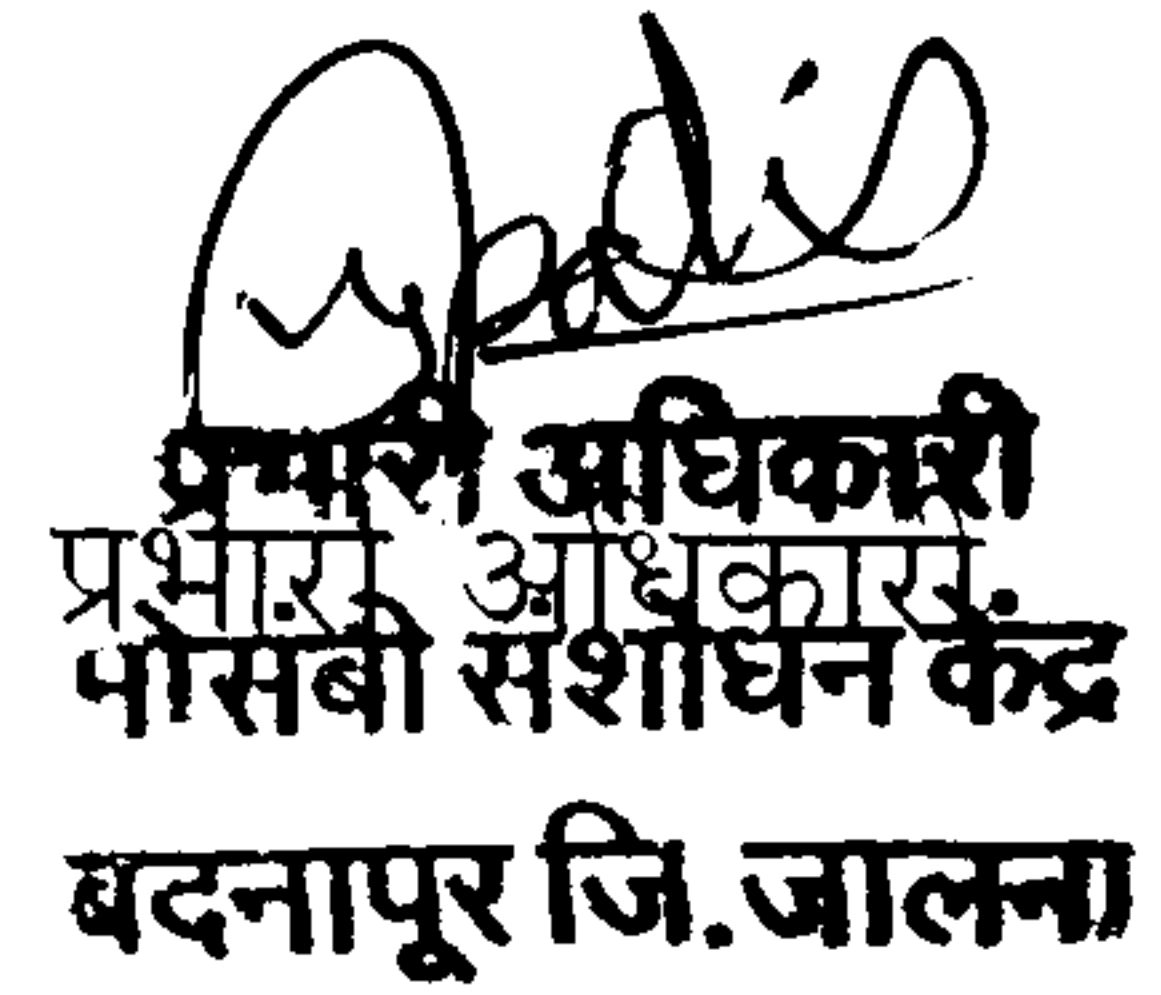 प्रभारी अधिकारी
प्रभारी अधिकारी
मोसंबी संशोधन केंद्र
बदनापूर जि. जालना